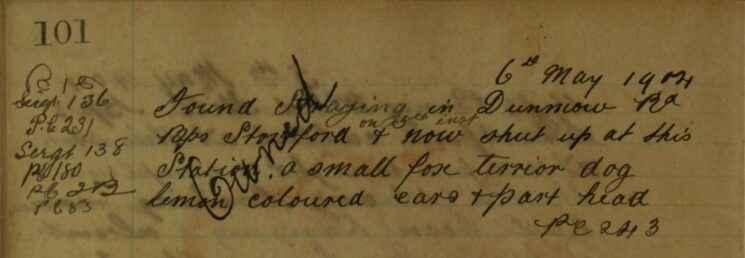 101
6th May 1904
Sergt 136
P.C. 231
Sergt 138
PC 180
PC 213
PC 83
Found Straying in Dunmow Rd
Bps Stortford on 5th inst & now shut up at this
Station. a small fox terrior dog
lemon coloured ears & part head
PC 243
Owned